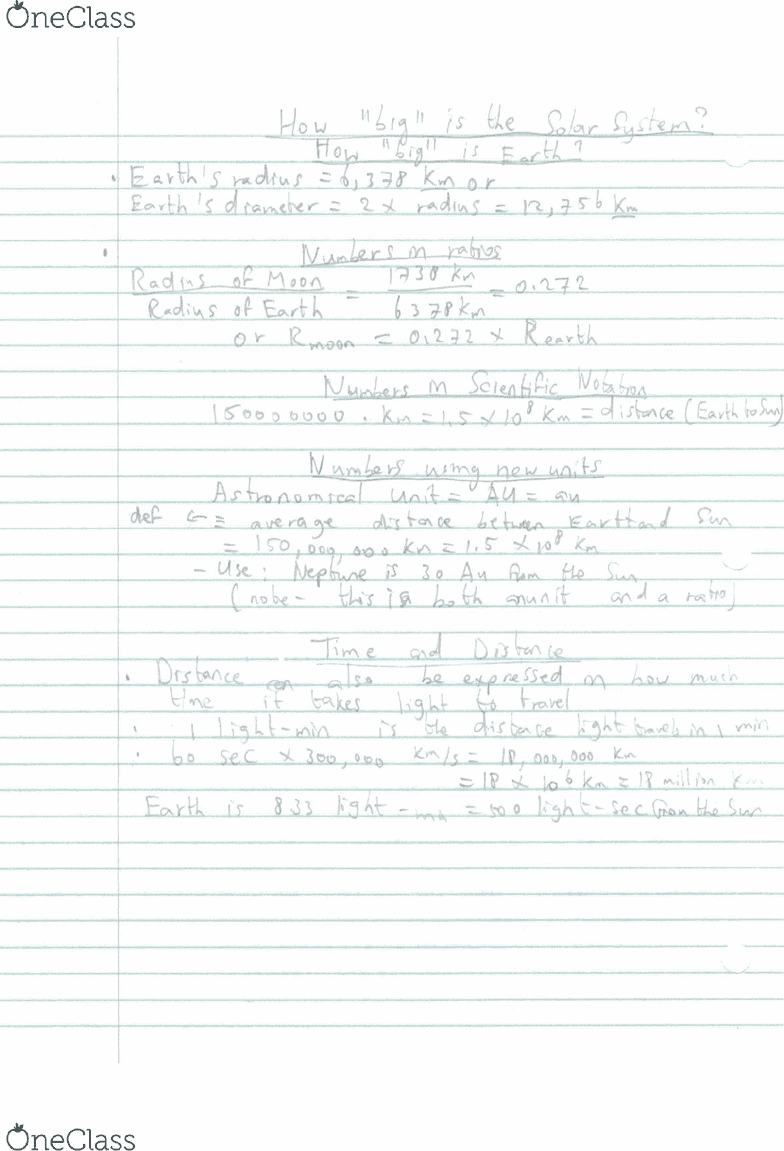 OneClass
How "big" is the Solar System?
How "big" is Earth?
• Earth's radius = 6,378 Km or
Earth's diameter = 2 x radius = 12,756 Km
• Numbers in ratios
Radius of Moon / Radius of Earth = 1738 km / 6378 km = 0.272
or R moon = 0.272 x R earth
Numbers in Scientific Notation
150000000 . Km = 1.5 x 10^8 Km = distance (Earth to Sun)
Numbers using new units
Astronomical unit = AU = au
def ≡ average distance between Earth and Sun
= 150,000,000 km = 1.5 x 10^8 Km
- Use: Neptune is 30 Au from the Sun
(note - this is both an unit and a ratio)
Time and Distance
• Distance can also be expressed in how much
time it takes light to travel
• 1 light-min is the distance light travels in 1 min
• 60 sec x 300,000 km/s = 18,000,000 Km
= 18 x 10^6 km = 18 million km
Earth is 833 light-min = 500 light-sec from the Sun
OneClass